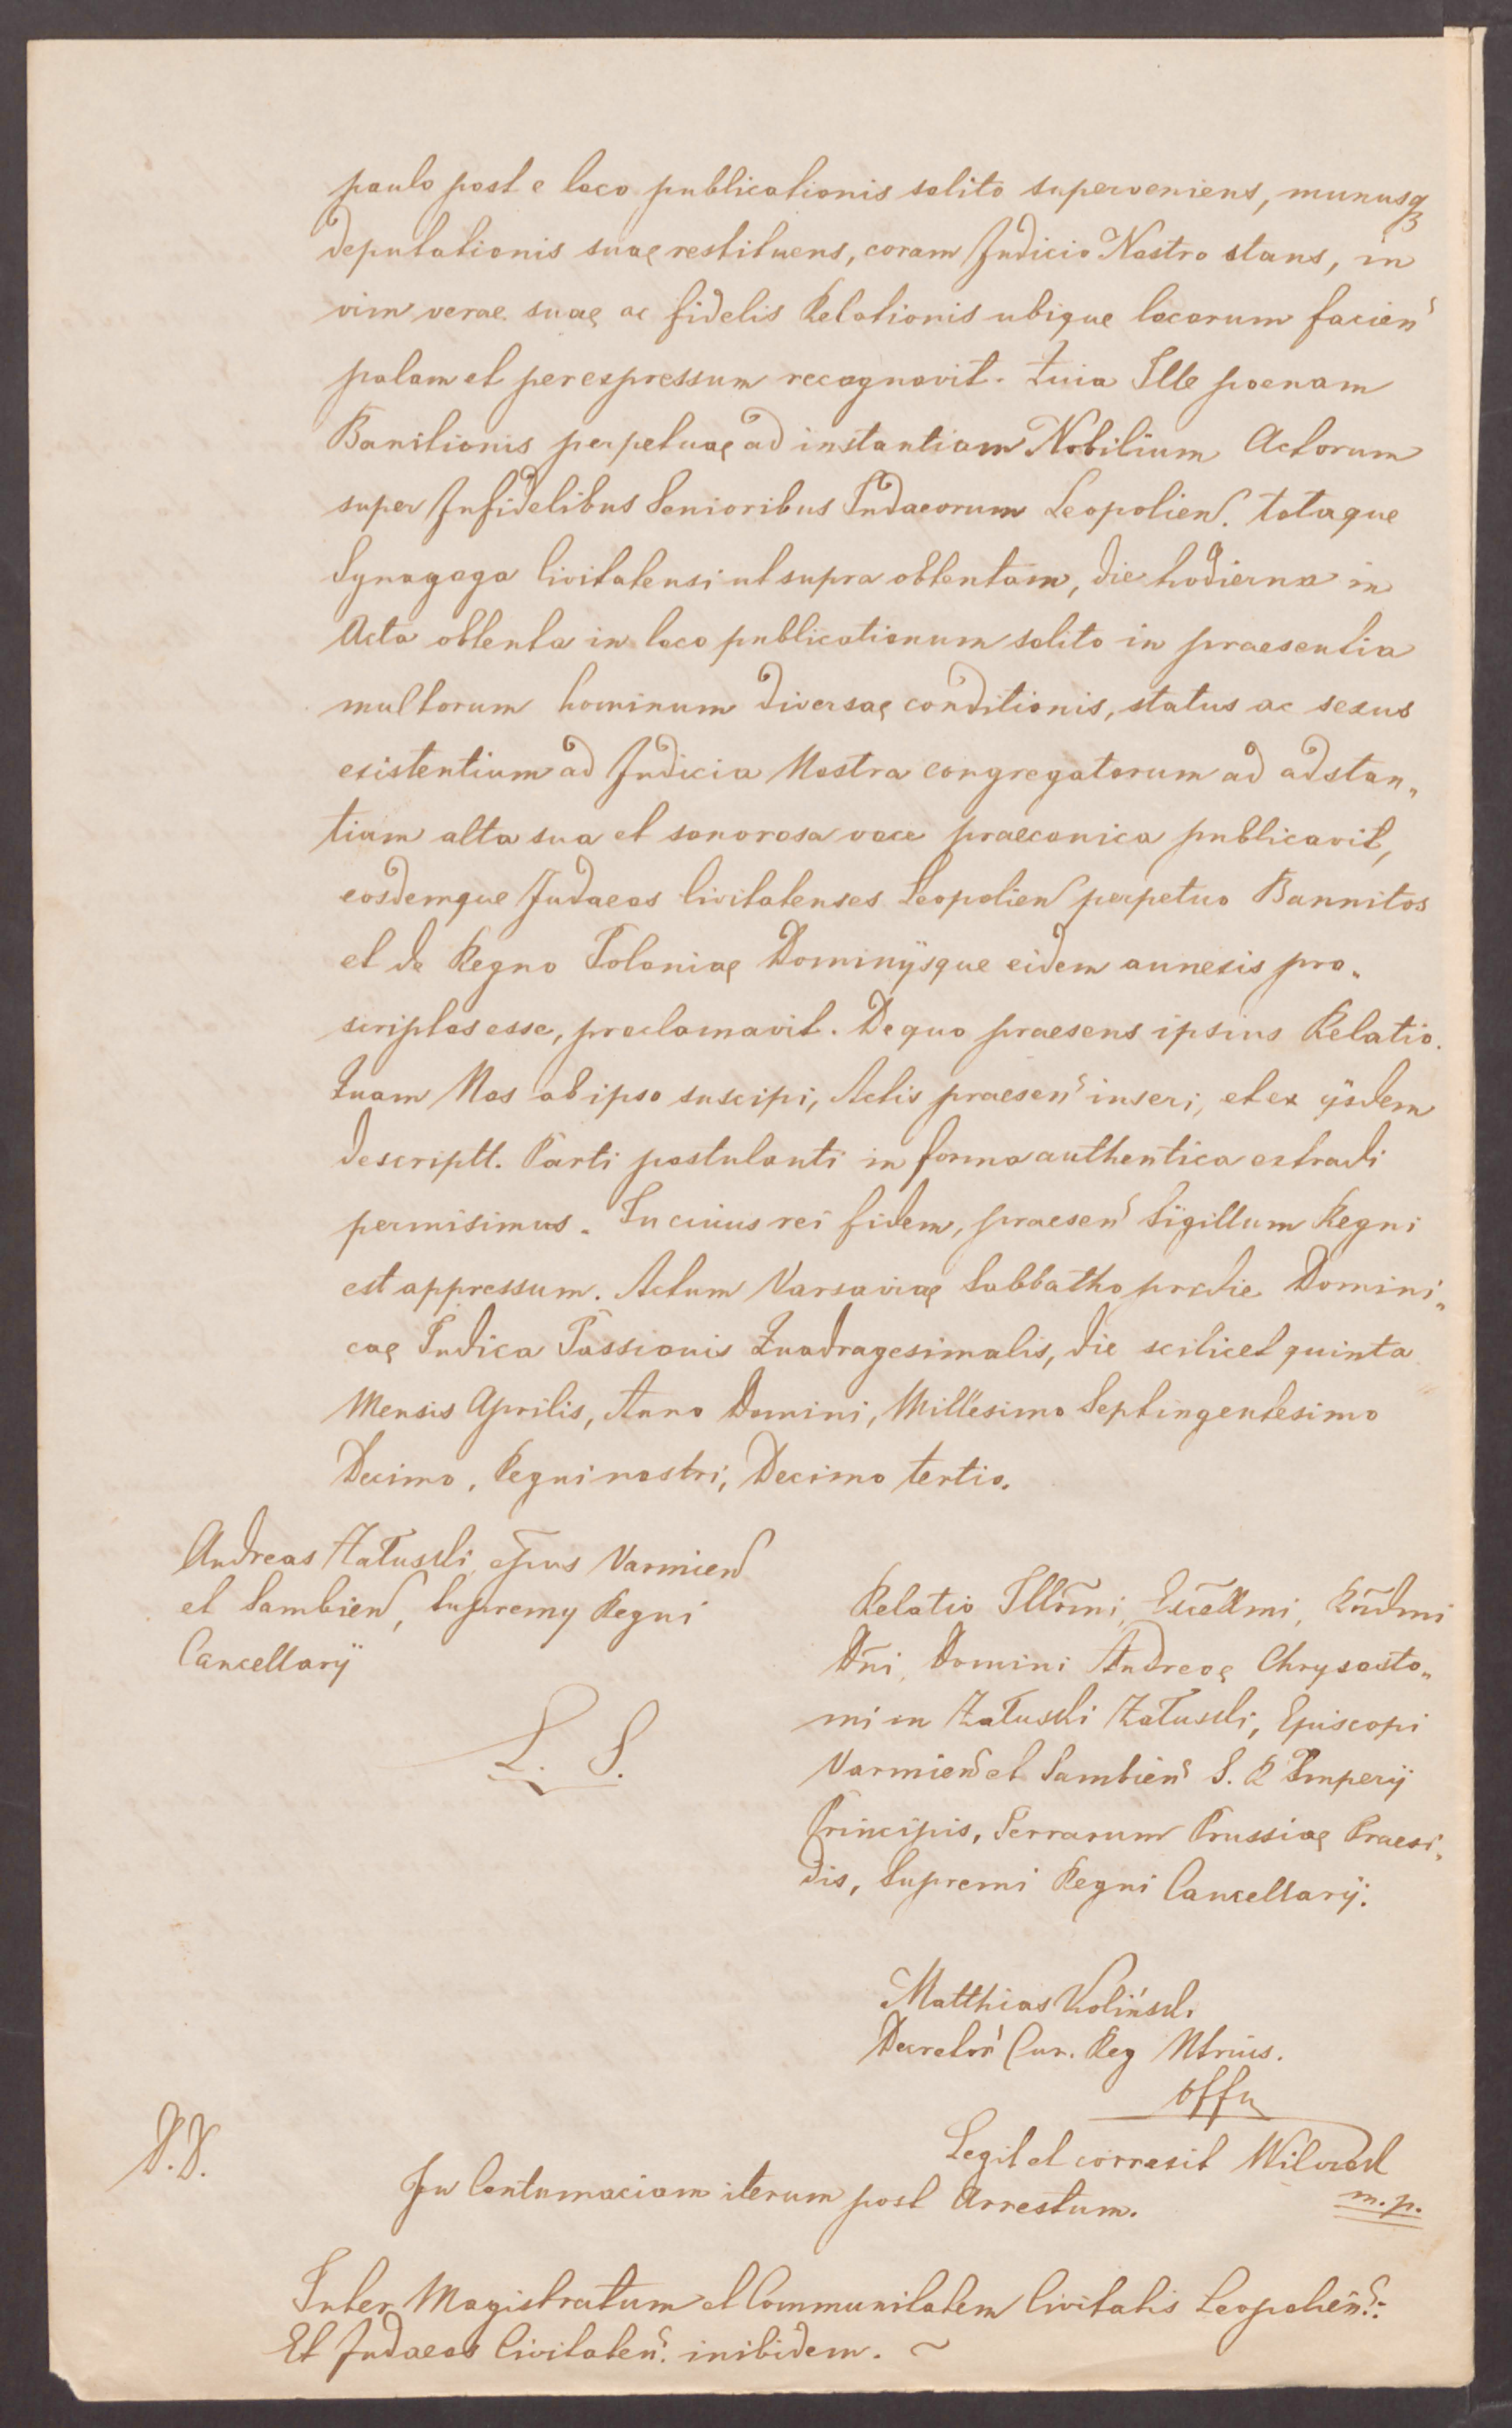 paulo post e loco publicationis solito superveniens, munusqꝫ
deputationis suae restituens, coram Judicio Nostro stans, in
vim verae suae ac fidelis Relationis ubique locorum facien
palam et per expressum recognovit. Quia Ille poenam
Banitionis perpetuae ad instantiam Nobilium Actorum
super Infidelibus Senioribus Judaeorum Leopolien. totaque
Synagoga Civitatensi ut supra obtentam, die hodierna in
Acta obtenta in loco publicationum solito in praesentia
multorum hominum diversae conditionis, status ac sexus
existentium ad Judicia Nostra congregatorum ad adstan„
tium alta sua et sonorosa voce praeconica publicavit,
eosdemque Judaeos Civitatenses Leopolien perpetuo Bannitos
et de Regno Poloniae Dominijsque eidem annexis pro„
scriptos esse, proclamavit. De quo praesens ipsius Relatio.
Quam Nos ab ipso suscipi, Actis praesen inseri, et ex ijsdem
descriptt. Parti postulanti in forma authentica extradi
permisimus. In cuius rei fidem, praesen Sigillum Regni
est appressum. Actum Varsaviae Sabbatho pridie Domini„
cae Judica Passionis Quadragesimalis, die scilicet quinta
Mensis Aprilis, Anno Domini, Millesimo Septingentesimo
Decimo, Regni nostri, Decimo tertio.
Andreas Załuski, epus Varmien
et Sambien, Supremy Regni
Cancellarij
L. S.
Relatio Illrmi, Excellmi, Rndmi
Dni, Domini Andreae Chrysosto„
mi in Załuski Załuski, Episcopi
Varmien et Sambien S. R Imperij
Principis, Terrarum Prussiae Praesi„
dis, Supremi Regni Cancellarij.
Matthias Woliński
Decretor Cur. Reg Ntrius.
offu
Legit et correxit Wilczek
m. p.
D. D.
In Contumaciam iterum post Arrestum.
Inter Magistratum et Communitatem Civitatis Leopolien:
Et Judaeos Civitaten. inibidem. ~